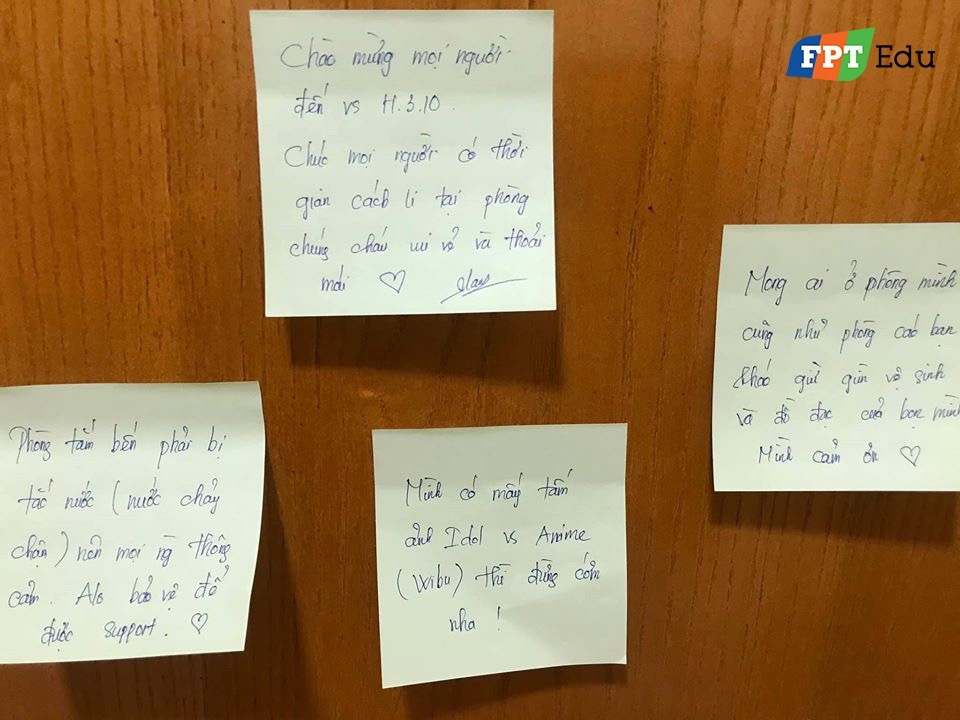 FPT Edu
Chào mừng mọi người
đến vs H.3.10.
Chúc mọi người có thời
gian cách li tại phòng
chúng cháu vui vẻ và thoải
mái ♡
Mong ai ở phòng mình
cũng như phòng các bạn
khác giữ gìn vệ sinh
và đồ đạc của bọn mình
Mình cảm ơn ♡
Phòng tắm bên phải bị
tắc nước (nước chảy
chậm) nên mọi ng thông
cảm. Alo bảo vệ để
được support. ♡
Mình có mấy tấm
ảnh Idol vs Anime
(Wibu) thì đừng cởm
nha !